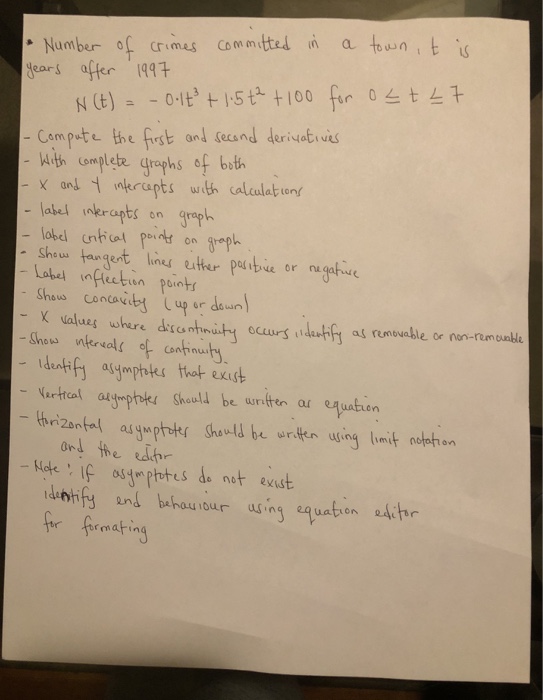 • Number of crimes committed in a town, t is
years after 1997
N(t) = - 0.1t³ + 1.5t² + 100 for 0 ≤ t ≤ 7
- Compute the first and second derivatives
- With complete graphs of both
- X and Y intercepts with calculations
- label intercepts on graph
- label critical points on graph
- Show tangent lines either positive or negative
- Label inflection points
- Show concavity (up or down)
- X values where discontinuity occurs, identify as removable or non-removable
- Show intervals of continuity.
- Identify asymptotes that exist
- Vertical asymptotes should be written as equation
- Horizontal asymptotes should be written using limit notation
and the editor
- Note : If asymptotes do not exist
identify end behaviour using equation editor
for formating